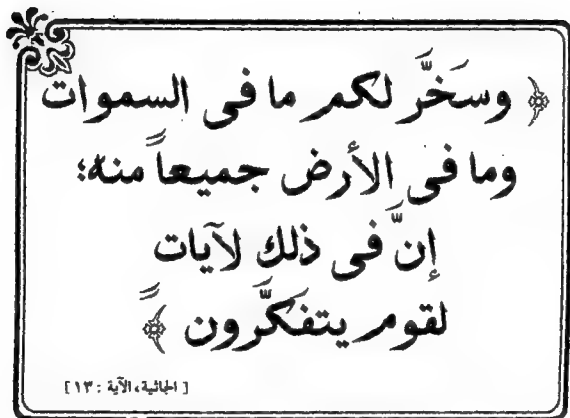 ﴿ وسَخَّر لكم ما فى السموات
وما فى الأرض جميعاً منه؛
إنَّ فى ذلك لآيات
لقومٍ يتفكَّرون ﴾
[ الجاثية، الآية : ١٣ ]